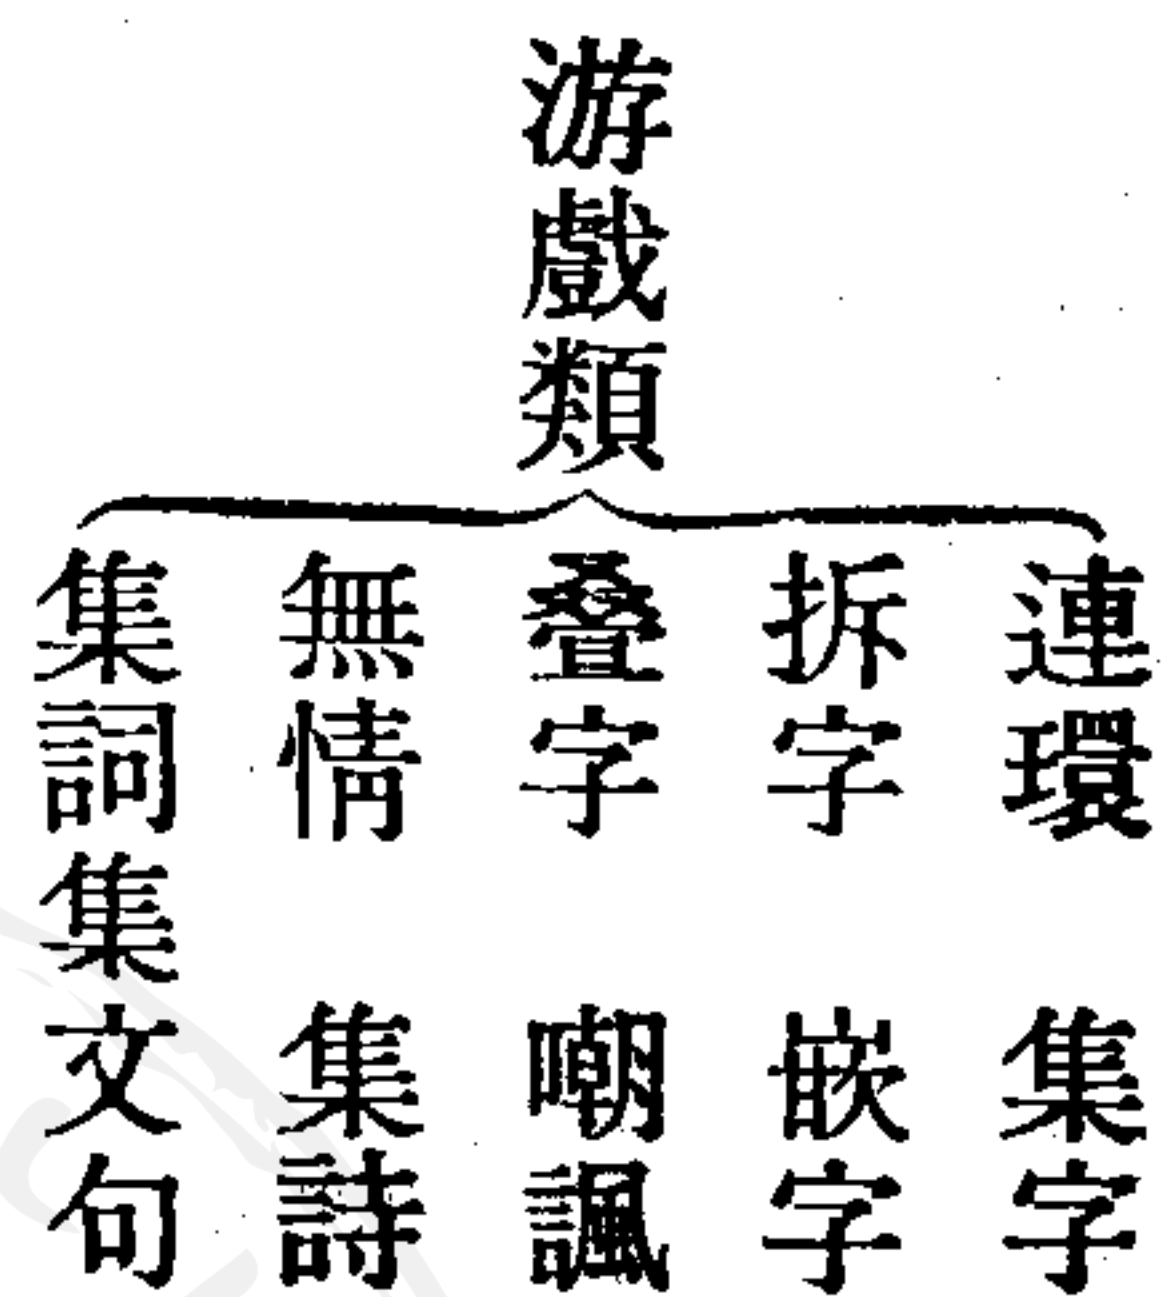 游戲類
連環 集字
拆字 嵌字
叠字 嘲諷
無情 集詩
集詞集文句